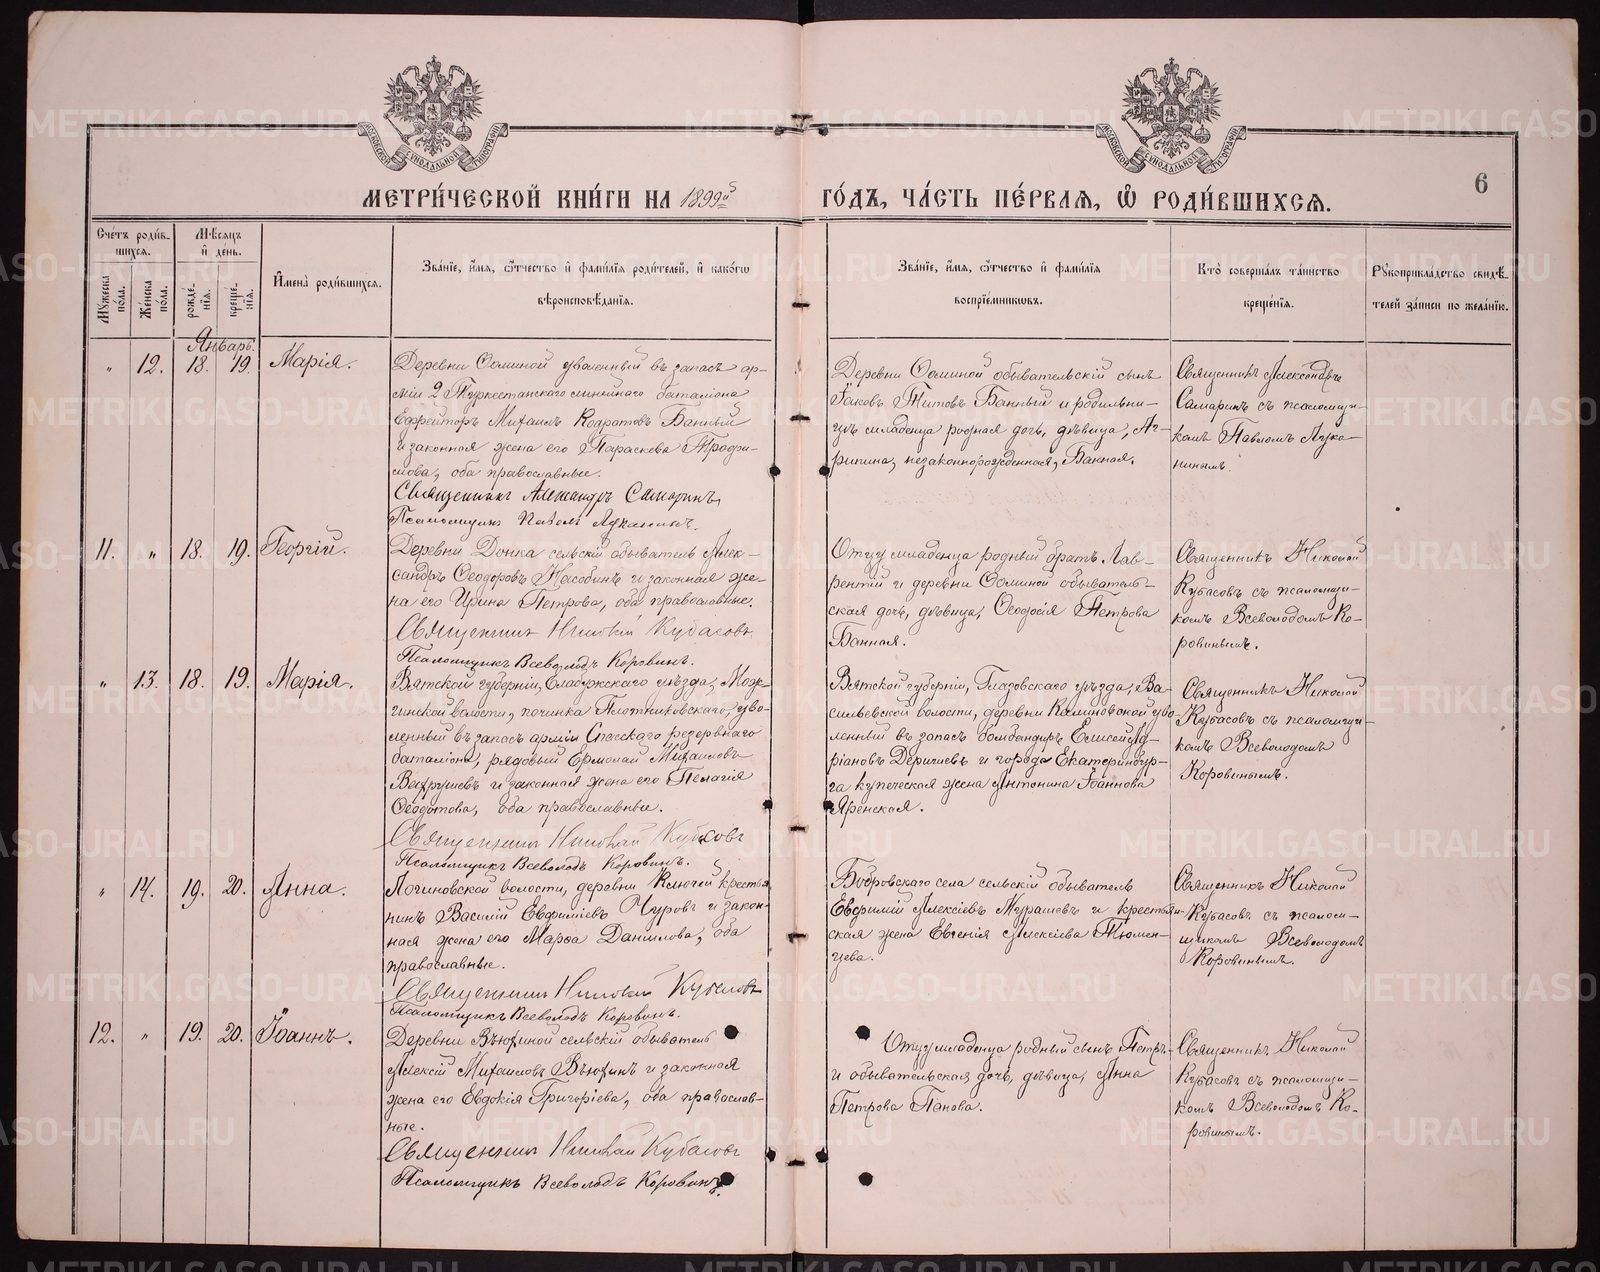 МОСКОВСКОЙ СѴНОДАЛЬНОЙ ТИПОГРАФІИ
МОСКОВСКОЙ СѴНОДАЛЬНОЙ ТИПОГРАФІИ
МЕТРИ́ЧЕСКОЙ КНИ́ГИ НА 1899й ГО́ДЪ, ЧА́СТЬ ПЕ́РВАЯ, Ѡ҆ РОДИ́ВШИХСЯ.
6
Сче́тъ роди́в-
шихся.
Мѣ́сяцъ
и҆ де́нь.
Мꙋ́жеска по́ла.
Же́нска по́ла.
рожде́-
нїя.
креще́-
нїя.
И҆мена̀ роди́вшихся.
Зва́нїе, и҆́мя, ѻ҆́тчество и҆ фами́лїя роди́телей, и҆ како́гѡ
вѣроисповѣ́данїя.
Зва́нїе, и҆́мя, ѻ҆́тчество и҆ фами́лїя
воспрїе́мниковъ.
Кто̀ соверша́лъ та́инство
креще́нїя.
Рꙋкоприкла́дство свидѣ́-
телей за́писи по жела́нїю.
Январь.
" 12. 18. 19. Марія.
Деревни Осминой уволенный въ запасъ ар-
міи 2 Туркестанскаго линейнаго баталіона
Ефрейторъ Михаилъ Кодратовъ Банный
и законная жена его Параскева Трофи-
мова, оба православные.
Священникъ Александръ Самаринъ,
Псаломщикъ Павелъ Луканинъ.
Деревни Осминой обывательскій сынъ
Іаковъ Титовъ Банный и родильни-
цы младенца родная дочь, дѣвица, Аг-
рипина, незаконнорожденная, Банная.
Священникъ Александръ
Самаринъ съ псаломщи-
комъ Павломъ Лука-
нинымъ.
11. " 18. 19. Георгій.
Деревни Донка сельскій обыватель Алек-
сандръ Ѳеодоровъ Насобинъ и законная же-
на его Ирина Петрова, оба православные.
Священникъ Николай Кубасовъ
Псаломщикъ Всеволодъ Коровинъ.
Отцу младенца родный братъ Лав-
рентій и деревни Осминой обыватель-
ская дочь, дѣвица, Ѳеодосія Петрова
Банная.
Священникъ Николай
Кубасовъ съ псаломщи-
комъ Всеволодомъ Ко-
ровинымъ.
" 13. 18. 19. Марія.
Вятской губерніи, Елабужскаго уѣзда, Мож-
гинской волости, починка Плотниковскаго, уво-
ленный въ запасъ арміи Спасскаго резервнаго
баталіона, рядовый Ермолай Михаиловъ
Вахрушевъ и законная жена его Пелагія
Ѳеодотова, оба православные.
Священникъ Николай Кубасовъ
Псаломщикъ Всеволодъ Коровинъ.
Вятской губерніи, Глазовскаго уѣзда, Ва-
сильевской волости, деревни Калиновской уво-
ленный въ запасъ бомбандиръ Елисей Ад-
ріановъ Деришевъ и города Екатеринбур-
га купеческая жена Антонина Іоаннова
Яренская.
Священникъ Николай
Кубасовъ съ псаломщи-
комъ Всеволодомъ
Коровинымъ.
" 14. 19. 20. Анна.
Логиновской волости, деревни Ключей крестья-
нинъ Василій Евфиміевъ Чуровъ и закон-
ная жена его Марѳа Данилова, оба
православные.
Священникъ Николай Кубасовъ
Псаломщикъ Всеволодъ Коровинъ.
Бобровскаго села сельскій обыватель
Евфимій Алексіевъ Мурашевъ и крестьян-
ская жена Евгенія Алексіева Тюмен-
цева.
Священникъ Николай
Кубасовъ съ псалом-
щикомъ Всеволодомъ
Коровинымъ.
12. " 19. 20. Іоаннъ.
Деревни Вьюхиной сельскій обыватель
Алексій Михаиловъ Вьюхинъ и законная
жена его Евдокія Григоріева, оба православ-
ные.
Священникъ Николай Кубасовъ
Псаломщикъ Всеволодъ Коровинъ.
Отцу младенца родный сынъ Петръ
и обывательская дочь, дѣвица, Анна
Петрова Панова.
Священникъ Николай
Кубасовъ съ псаломщи-
комъ Всеволодомъ Ко-
ровинымъ.